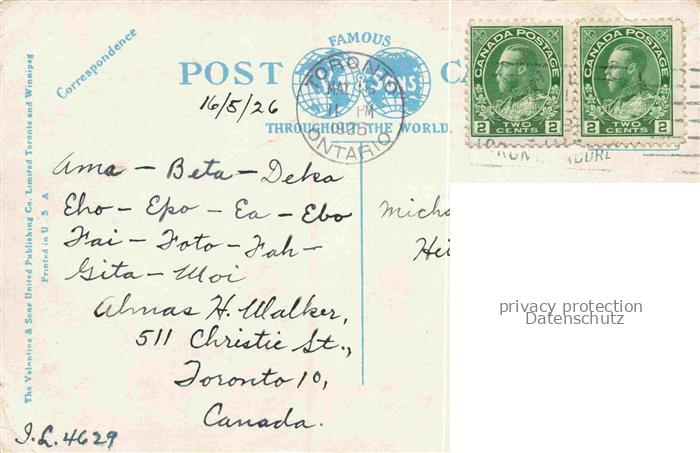 Correspondence
FAMOUS
POST CA
THROUGHOUT THE WORLD.
TORONTO
MAY
11 PM
1926
ONTARIO
CANADA POSTAGE
2 TWO CENTS 2
CANADA POSTAGE
2 TWO CENTS 2
16/5/26
Ama – Beta – Deka
Eho – Epo – Ea – Ebo
Fai – Foto – Fah –
Gita – Moi
Almas H. Walker,
511 Christie St.,
Toronto 10,
Canada.
I.L. 4629
Micha
Hei
privacy protection
Datenschutz
The Valentine & Sons United Publishing Co. Limited Toronto and Winnipeg
Printed in U S A